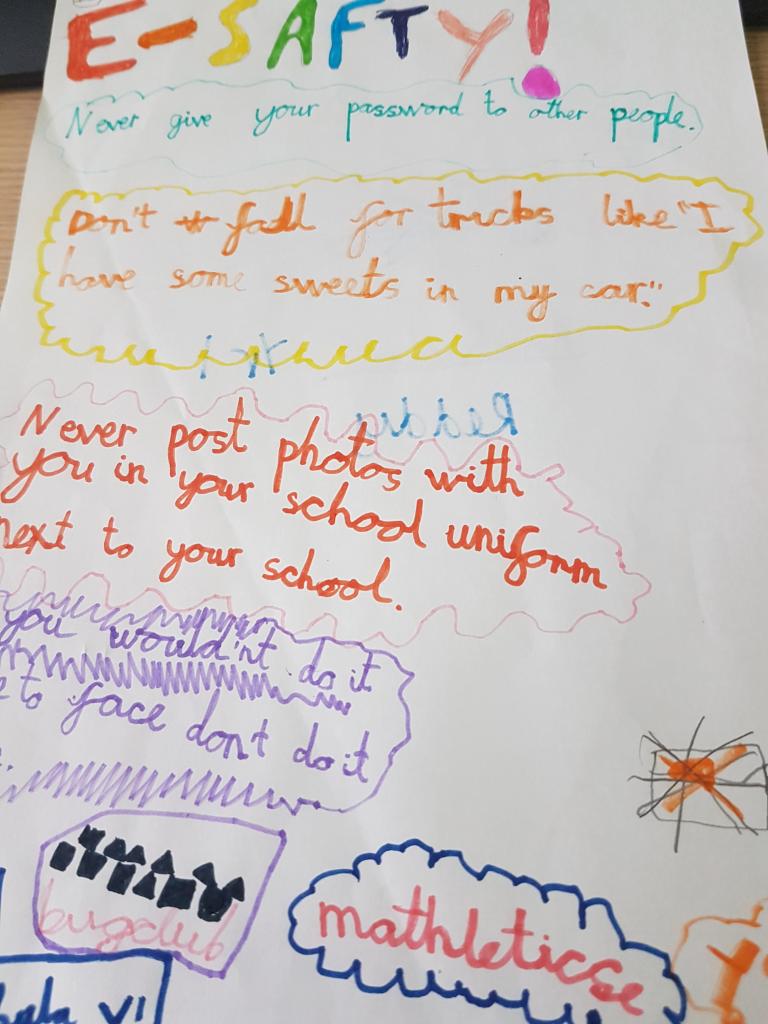 E-SAFTY!
Never give your password to other people.
Don't fall for tricks like "I
have some sweets in my car."
Never post photos with
you in your school uniform
next to your school.
you would'nt do it
to face don't do it
bugclub
mathleticse